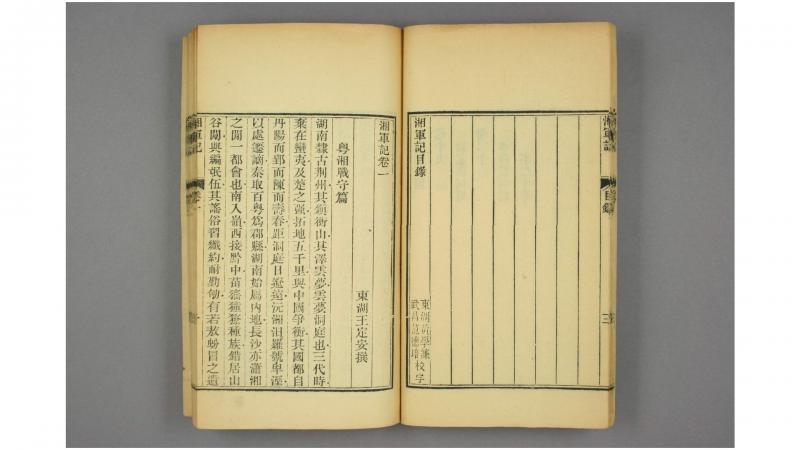 湘軍記 目錄 三
湘軍記目錄
校字
湘軍記卷一
東湖王定安撰
粵湘戰守篇
湖南隸古荊州其鎮衡山其澤雲夢雲夢洞庭也三代時
棄在蠻夷及楚之强拓地五千里與中國爭衡其國都自
丹陽而郢而陳而壽春距洞庭日遼遠沅湘汨羅號卑溼
以處遷謫秦取百粵爲郡縣湖南始屬內地長沙亦瀟湘
之閒一都會也南入嶺西接黔中苗猺獞種族錯居山
谷閒與編氓伍其謠俗習纖約耐勤劬有若敖蚡冒之遺
湘軍記 卷一